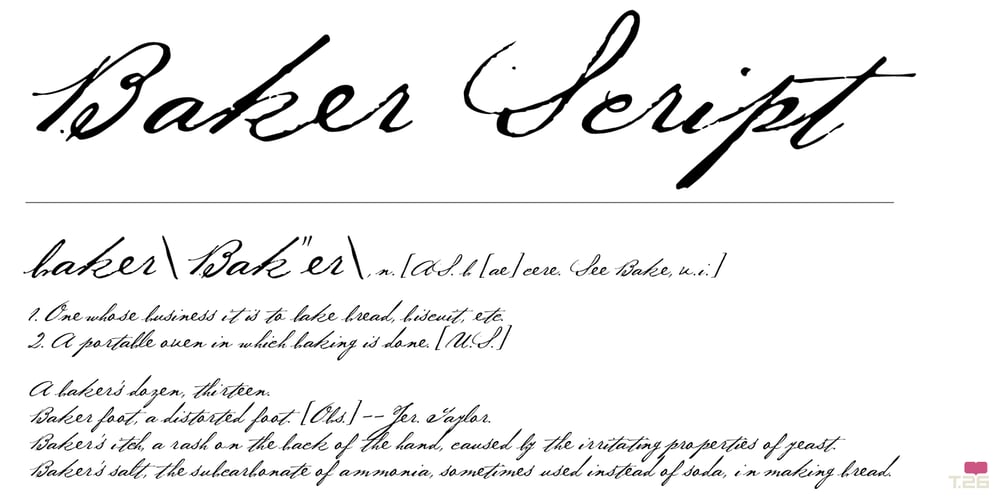 Baker Script
baker\ Bak"er\, n. [AS. b[ae]cere. See Bake, v.i.]
1. One whose business it is to bake bread, biscuit, etc.
2. A portable oven in which baking is done. [U.S.]
A baker's dozen, thirteen.
Baker foot, a distorted foot. [Obs.] -- Jer. Taylor.
Baker's itch, a rash on the back of the hand, caused by the irritating properties of yeast.
Baker's salt, the subcarbonate of ammonia, sometimes used instead of soda, in making bread.
T.26